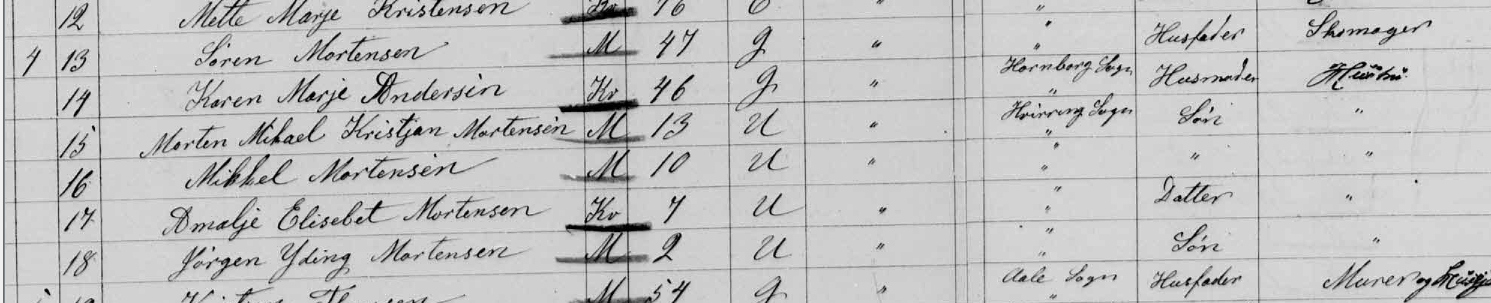 12 Mette Marje Kristensen Kv 76 " "
4 13 Søren Mortensen M 47 g " " Husfader Skomager
14 Karen Marje Andersen Kv 46 g " Hornborg Sogn Husmoder
15 Morten Mikael Kristjan Mortensen M 13 U " Hvirring Sogn Søn "
16 Mikkel Mortensen M 10 U " " " "
17 Amalje Elisebet Mortensen Kv 7 U " " Datter "
18 Jørgen Yding Mortensen M 2 U " " Søn "
M 54 g " Aale Sogn Husfader Murer og